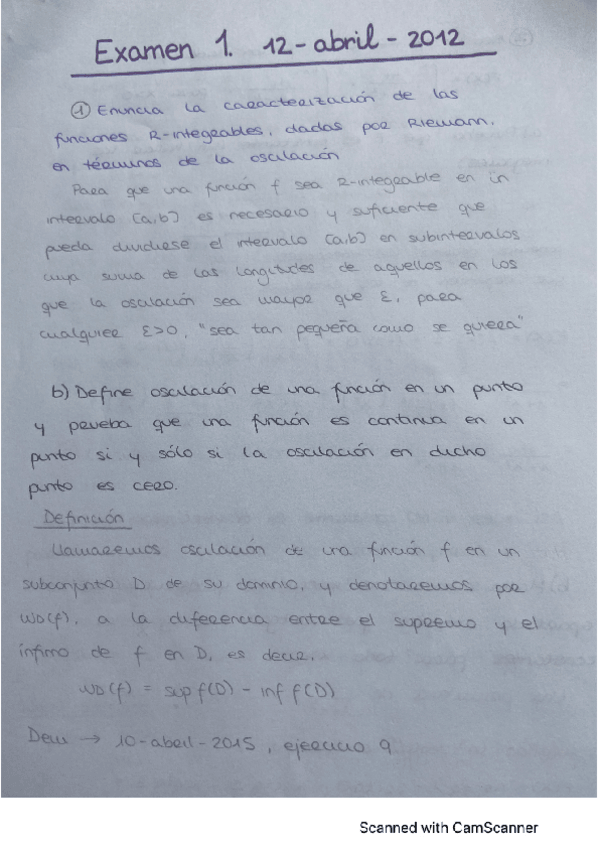 Examen 1. 12-abril-2012
① Enuncia la caracterización de las
funciones R-integrables, dadas por Riemann,
en términos de la osculación
Para que una función f sea R-integrable en un
intervalo [a,b] es necesario y suficiente que
pueda dividirse el intervalo [a,b] en subintervalos
cuya suma de las longitudes de aquellos en los
que la osculación sea mayor que ε, para
cualquier ε>0, "sea tan pequeña como se quiera"
b) Define osculación de una función en un punto
y prueba que una función es continua en un
punto si y sólo si la osculación en dicho
punto es cero.
Definición
Llamaremos osculación de una función f en un
subconjunto D de su dominio, y denotaremos por
WD(f), a la diferencia entre el supremo y el
ínfimo de f en D, es decir,
WD(f) = sup f(D) - inf f(D)
Dem → 10-abril-2015, ejercicio 9
Scanned with CamScanner